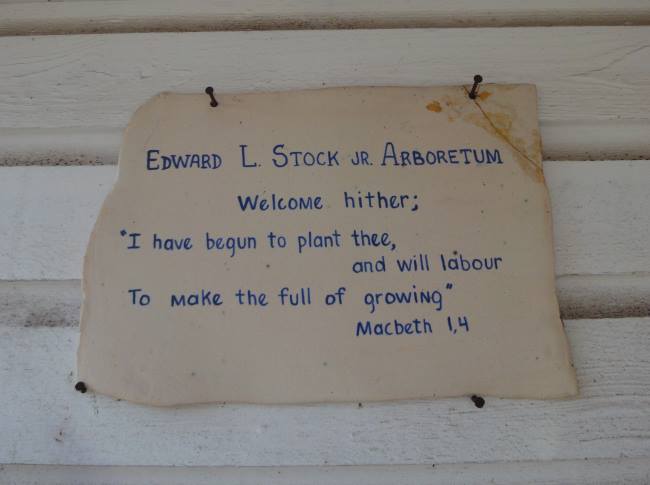 EDWARD L. STOCK JR. ARBORETUM
Welcome hither;
"I have begun to plant thee,
and will labour
To make the full of growing"
Macbeth 1,4